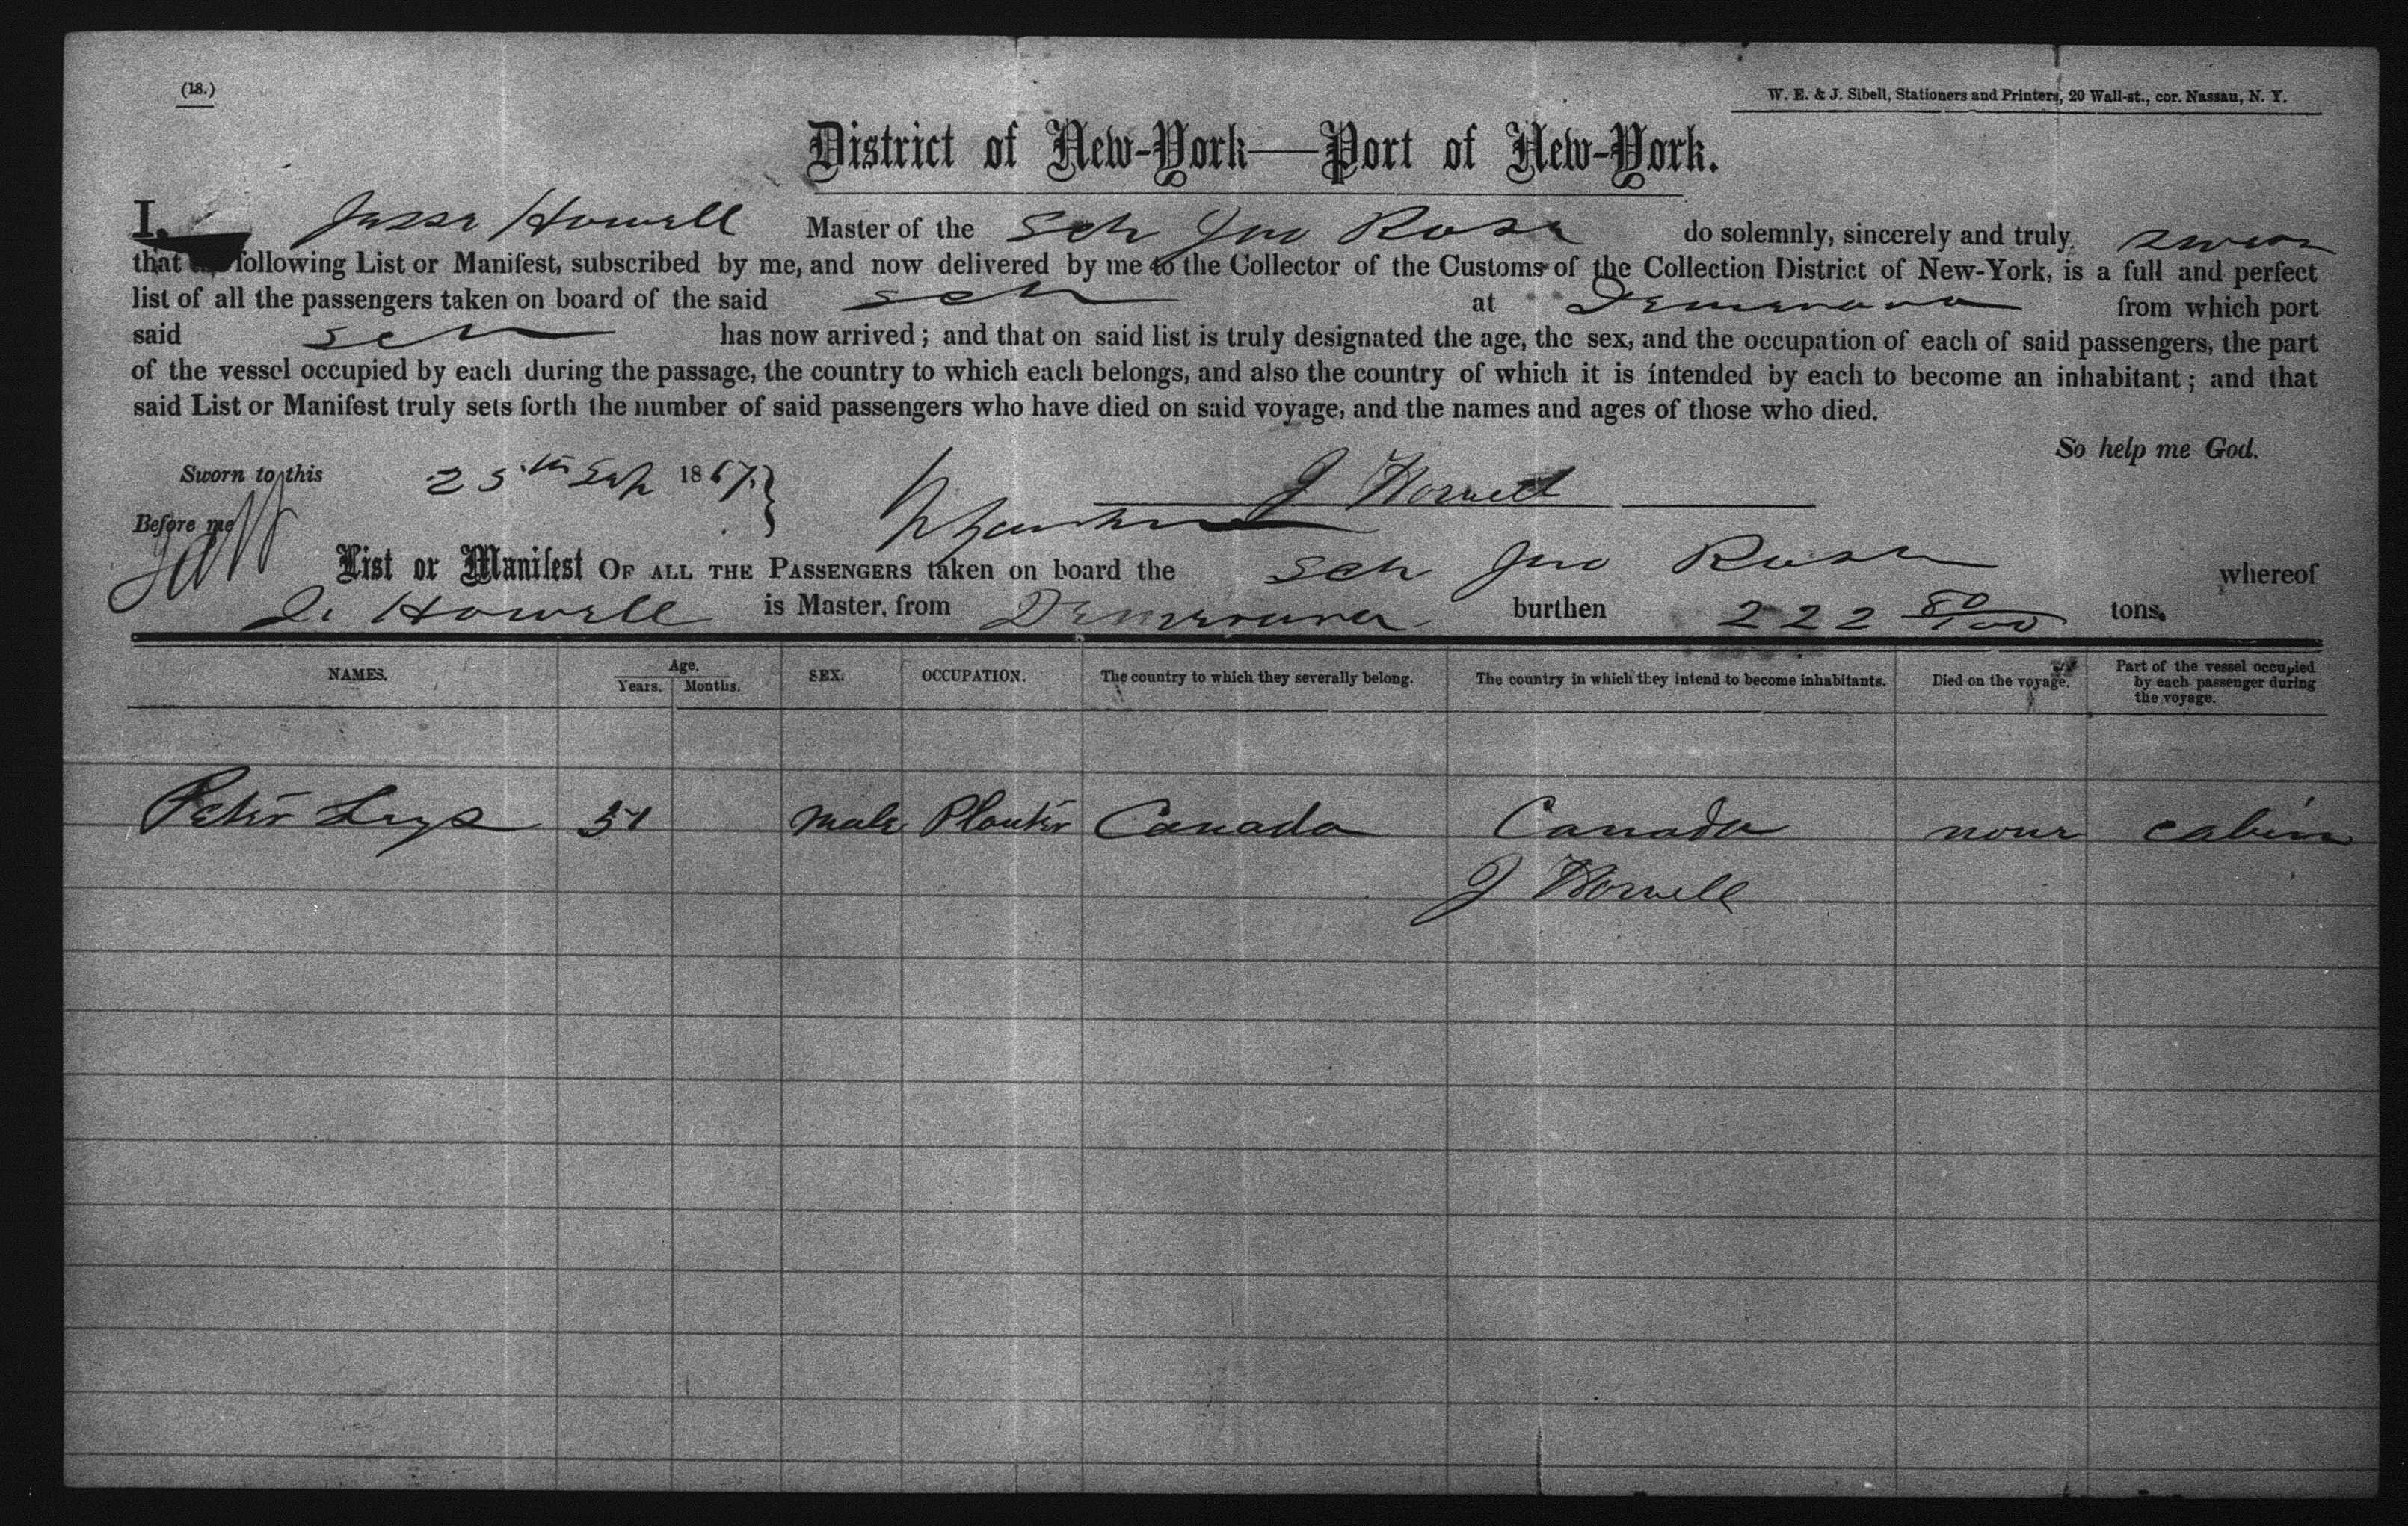 (18.)
W. E. & J. Sibell, Stationers and Printers, 20 Wall-st., cor. Nassau, N. Y.
District of New-York—Port of New-York.
I, Jesse Howell Master of the Sch Jno Rose do solemnly, sincerely and truly swear
that following List or Manifest, subscribed by me, and now delivered by me to the Collector of the Customs of the Collection District of New-York, is a full and perfect
list of all the passengers taken on board of the said Sch at Demerara from which port
said Sch has now arrived; and that on said list is truly designated the age, the sex, and the occupation of each of said passengers, the part
of the vessel occupied by each during the passage, the country to which each belongs, and also the country of which it is intended by each to become an inhabitant; and that
said List or Manifest truly sets forth the number of said passengers who have died on said voyage, and the names and ages of those who died.
So help me God.
Sworn to this 25th Sep 1867. J Howell
Before me
List or Manifest OF ALL THE PASSENGERS taken on board the Sch Jno Rose whereof
J. Howell is Master, from Demerara burthen 222 80/100 tons.
NAMES. Age. Years. Months. SEX. OCCUPATION. The country to which they severally belong. The country in which they intend to become inhabitants. Died on the voyage. Part of the vessel occupied by each passenger during the voyage.
Peter Male Planter Canada Canada none cabin
J Howell